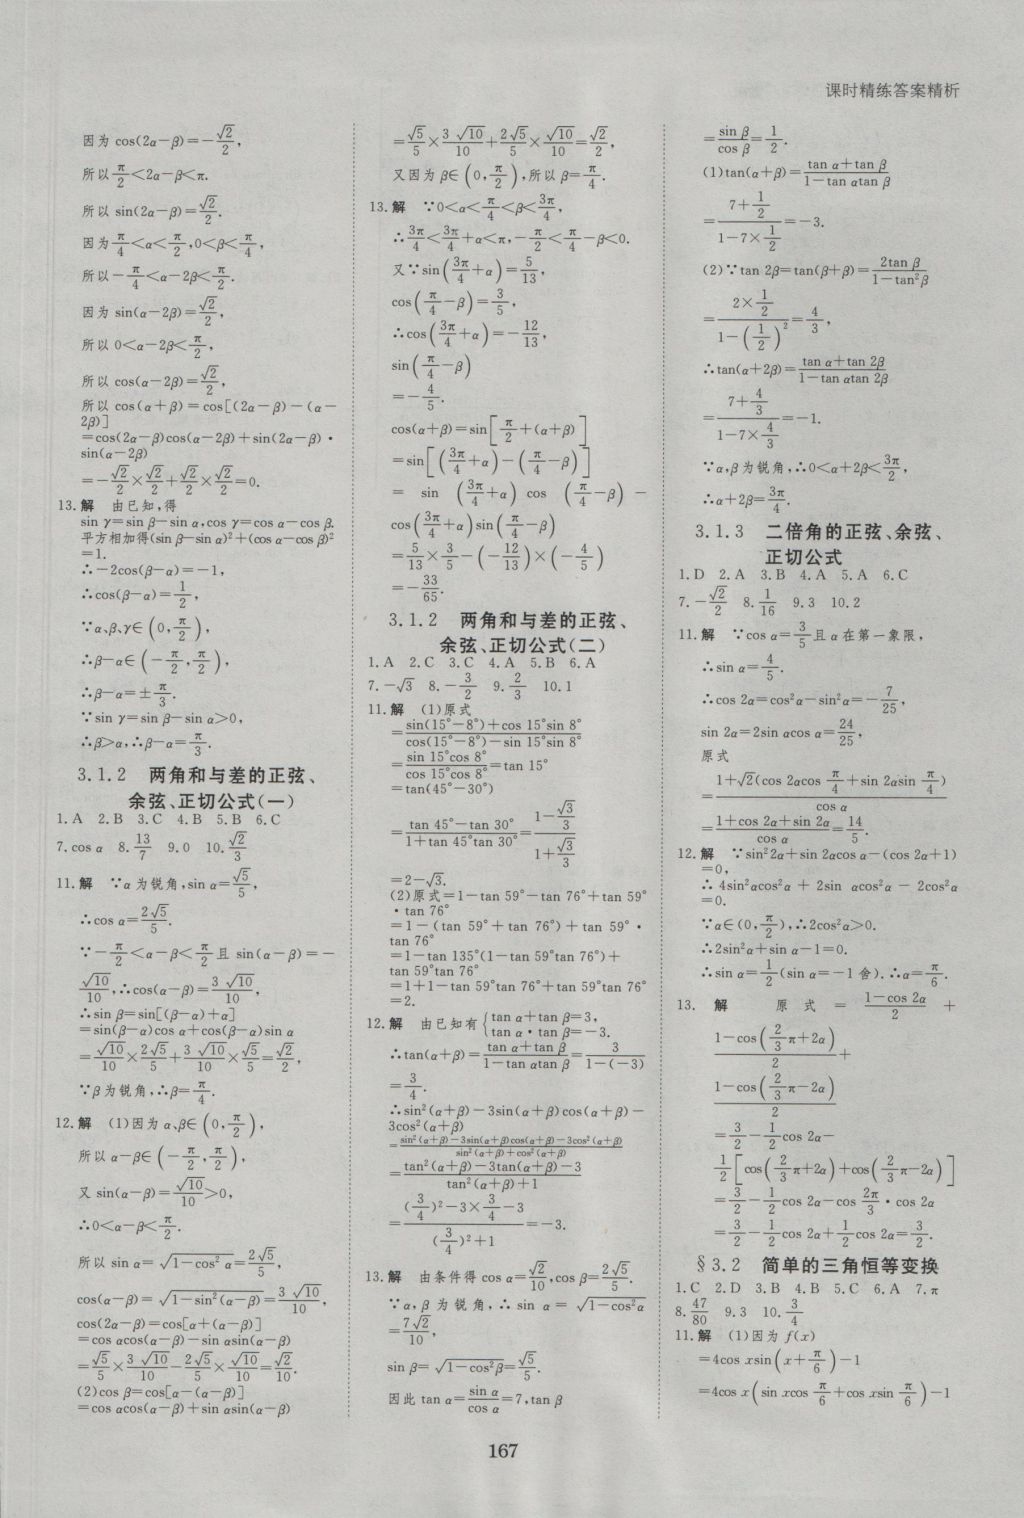 课时精练答案精析
因为 cos(2α－β)＝－√2/2，
所以 π/2＜2α－β＜π.
所以 sin(2α－β)＝√2/2.
因为 π/4＜α＜π/2，0＜β＜π/4，
所以－π/4＜α－2β＜π/2.
因为 sin(α－2β)＝√2/2，
所以 0＜α－2β＜π/2，
所以 cos(α－2β)＝√2/2，
所以 cos(α＋β)＝cos[(2α－β)－(α－
2β)]
＝cos(2α－β)cos(α－2β)＋sin(2α－β)·
sin(α－2β)
＝－√2/2×√2/2＋√2/2×√2/2＝0.
13.解 由已知,得
sin γ＝sin β－sin α,cos γ＝cos α－cos β.
平方相加得(sin β－sin α)²＋(cos α－cos β)²
＝1.
∴－2cos(β－α)＝－1,
∴cos(β－α)＝1/2,
∵α、β、γ∈(0,π/2),
∴β－α∈(－π/2,π/2),
∴β－α＝±π/3.
∵sin γ＝sin β－sin α＞0,
∴β＞α,∴β－α＝π/3.
3.1.2 两角和与差的正弦、
余弦、正切公式(一)
1.A 2.B 3.C 4.B 5.B 6.C
7.cos α 8.13/7 9.0 10.√2/3
11.解 ∵α为锐角,sin α＝√5/5,
∴cos α＝2√5/5.
∵－π/2＜α－β＜π/2且 sin(α－β)＝－
√10/10,∴cos(α－β)＝3√10/10,
∴sin β＝sin[(β－α)＋α]
＝sin(β－α)cos α＋cos(β－α)sin α
＝√10/10×2√5/5＋3√10/10×√5/5＝√2/2,
∵β为锐角,∴β＝π/4.
12.解 (1)因为 α、β∈(0,π/2),
所以 α－β∈(－π/2,π/2),
又 sin(α－β)＝√10/10＞0,
∴0＜α－β＜π/2.
所以 sin α＝√(1－cos² α)＝2√5/5,
cos(α－β)＝√(1－sin²(α－β))＝3√10/10,
cos(2α－β)＝cos[α＋(α－β)]
＝cos αcos(α－β)－sin αsin(α－β)
＝√5/5×3√10/10－2√5/5×√10/10＝√2/10.
(2)cos β＝cos[α－(α－β)]
＝cos αcos(α－β)＋sin αsin(α－β)
＝√5/5×3√10/10＋2√5/5×√10/10＝√2/2,
又因为 β∈(0,π/2),所以 β＝π/4.
13.解 ∵0＜α＜π/4＜β＜3π/4,
∴3π/4＜3π/4＋α＜π,－π/2＜π/4－β＜0.
又∵sin(3π/4＋α)＝5/13,
cos(π/4－β)＝3/5,
∴cos(3π/4＋α)＝－12/13,
sin(π/4－β)
＝－4/5.
cos(α＋β)＝sin[π/2＋(α＋β)]
＝sin[(3π/4＋α)－(π/4－β)]
＝ sin (3π/4＋α) cos (π/4－β) －
cos(3π/4＋α)sin(π/4－β)
＝5/13×3/5－(－12/13)×(－4/5)
＝－33/65.
3.1.2 两角和与差的正弦、
余弦、正切公式(二)
1.A 2.C 3.C 4.A 5.B 6.A
7.－√3 8.－3/2 9.2/3 10.1
11.解 (1)原式
＝[sin(15°－8°)＋cos 15°sin 8°]/[cos(15°－8°)－sin 15°sin 8°]
＝sin 15°cos 8°/cos 15°cos 8°＝tan 15°
＝tan(45°－30°)
＝(tan 45°－tan 30°)/(1＋tan 45°tan 30°)＝(1－√3/3)/(1＋√3/3)
＝2－√3.
(2)原式＝1－tan 59°－tan 76°＋tan 59°
·tan 76°
＝1－(tan 59°＋tan 76°)＋tan 59°·
tan 76°
＝1－tan 135°(1－tan 59°tan 76°)＋
tan 59°tan 76°
＝1＋1－tan 59°tan 76°＋tan 59°tan 76°
＝2.
12.解 由已知有{tan α＋tan β＝3,
tan α·tan β＝－3.
∴tan(α＋β)＝(tan α＋tan β)/(1－tan αtan β)＝3/(1－(－3))
＝3/4.
∴sin²(α＋β)－3sin(α＋β)cos(α＋β)－
3cos²(α＋β)
＝[sin²(α＋β)－3sin(α＋β)cos(α＋β)－3cos²(α＋β)]/[sin²(α＋β)＋cos²(α＋β)]
＝[tan²(α＋β)－3tan(α＋β)－3]/[tan²(α＋β)＋1]
＝[(3/4)²－3×3/4－3]/[(3/4)²＋1]＝－3.
13.解 由条件得 cos α＝√2/10,cos β＝2√5/5.
∵α,β为锐角,∴ sin α ＝ √(1－cos²α)
＝7√2/10,
sin β＝√(1－cos²β)＝√5/5.
因此 tan α＝sin α/cos α＝7,tan β
＝sin β/cos β＝1/2.
(1)tan(α＋β)＝(tan α＋tan β)/(1－tan αtan β)
＝(7＋1/2)/(1－7×1/2)＝－3.
(2)∵tan 2β＝tan(β＋β)＝2tan β/(1－tan²β)
＝(2×1/2)/(1－(1/2)²)＝4/3,
∴tan(α＋2β)＝(tan α＋tan 2β)/(1－tan αtan 2β)
＝(7＋4/3)/(1－7×4/3)＝－1.
∵α,β为锐角,∴0＜α＋2β＜3π/2,
∴α＋2β＝3π/4.
3.1.3 二倍角的正弦、余弦、
正切公式
1.D 2.A 3.B 4.A 5.A 6.C
7.－√2/2 8.1/16 9.3 10.2
11.解 ∵cos α＝3/5且 α 在第一象限,
∴sin α＝4/5.
∴cos 2α＝cos²α－sin²α＝－7/25,
sin 2α＝2sin αcos α＝24/25,
原式
＝[1＋√2(cos 2αcos π/4＋sin 2αsin π/4)]/cos α
＝(1＋cos 2α＋sin 2α)/cos α＝14/5.
12.解 ∵sin²2α＋sin 2αcos α－(cos 2α＋1)
＝0,
∴ 4sin²αcos²α ＋ 2sin αcos²α － 2cos²α
＝0.
∵α∈(0,π/2),∴2cos²α＞0.
∴2sin²α＋sin α－1＝0.
∴sin α＝1/2(sin α＝－1舍).∴α＝π/6.
13. 解 原 式 ＝ (1－cos 2α)/2 ＋
[1－cos(2/3π＋2α)]/2＋
[1－cos(2/3π－2α)]/2
＝3/2－1/2cos 2α－
1/2[cos(2/3π＋2α)＋cos(2/3π－2α)]
＝3/2－1/2cos 2α－cos 2π/3·cos 2α
＝3/2－1/2cos 2α＋1/2cos 2α＝3/2.
§3.2 简单的三角恒等变换
1.C 2.D 3.B 4.B 5.C 6.A 7.π
8.47/80 9.3 10.3/4
11.解 (1)因为 f(x)
＝4cos xsin(x＋π/6)－1
＝4cos x(sin xcos π/6＋cos xsin π/6)－1
167